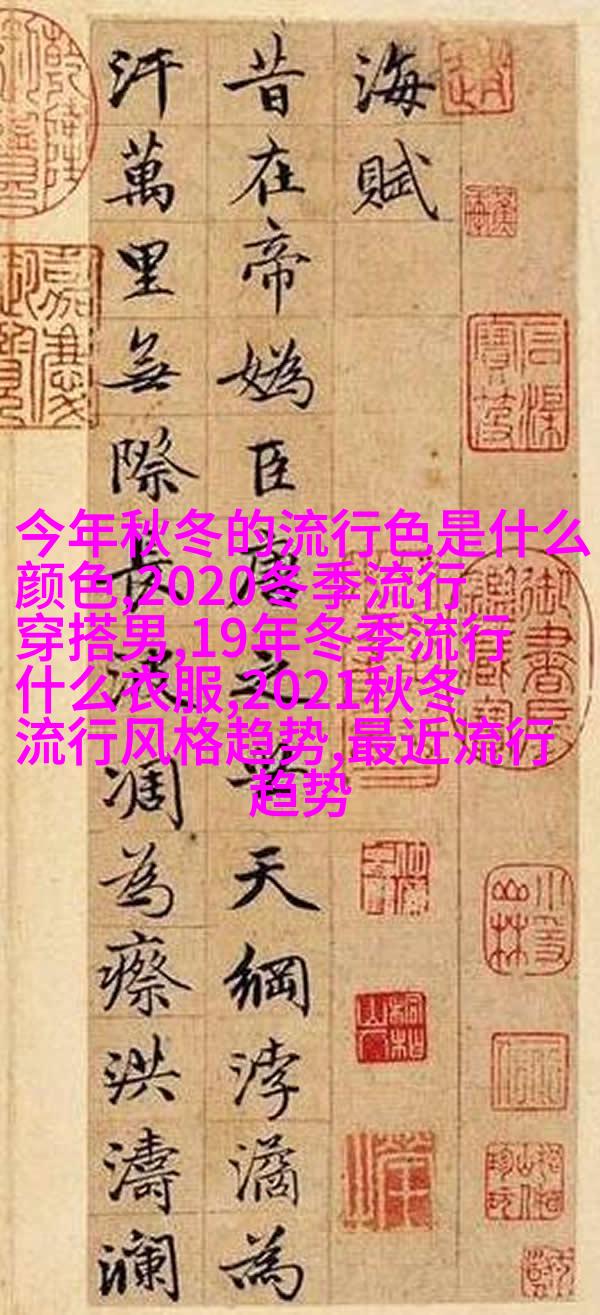 海賦
昔在帝媯臣唐之世天綱浡潏為
汗萬里無際長波凋為瘵洪濤瀾
今年秋冬的流行色是什么
颜色,2020冬季流行
穿搭男,19年冬季流行
什么衣服,2021秋冬
流行风格趋势,最近流行
趋势